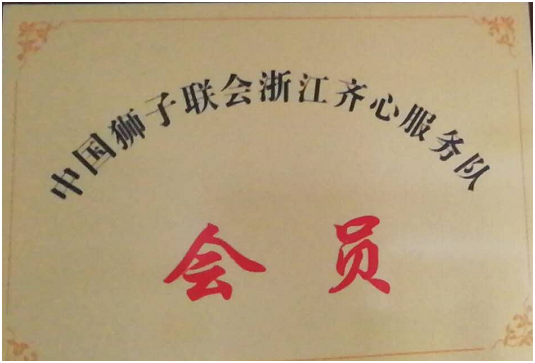 中国狮子联会浙江齐心服务队
会员